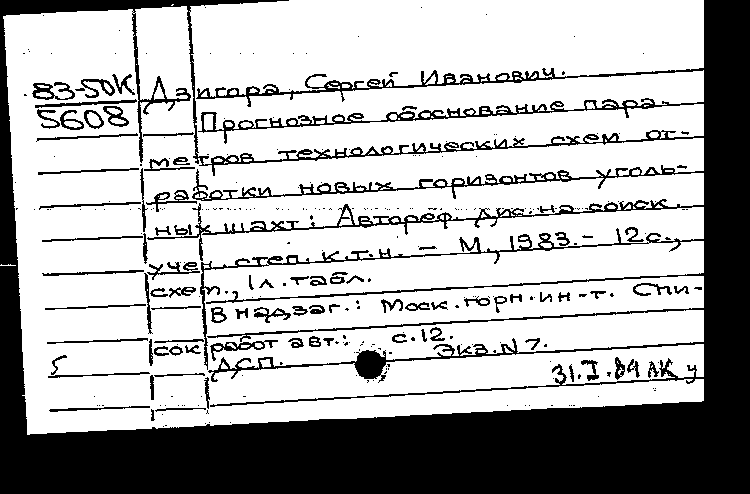 83-50К Дзигара, Сергей Иванович.
5608 Прогнозное обоснование пара-
метров технологических схем от-
работки новых горизонтов уголь-
ных шахт: Автореф. дис. на соиск.
учен. степ. к.т.н. – М., 1983. – 12с.,
схем., 1л. табл.
В надзаг.: Моск. горн. ин-т. Спи-
сок работ авт.: с.12.
5 ДСП. Экз. N 7.
31.I.84